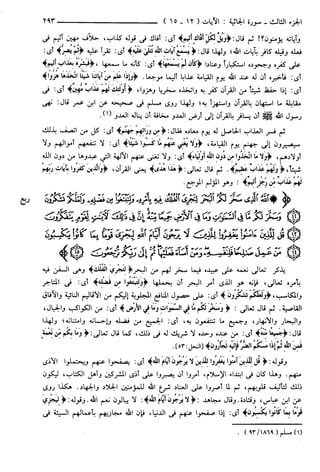 الجزء الثالث - سورة الجاثية : الآيات ( ١٢ - ١٥ ) ٢٩٣
وآياته يؤمنون؟! ثم قال: ﴿وَيْلٌ لِّكُلِّ أَفَّاكٍ أَثِيمٍ﴾ أي: أفاك في قوله كذاب، حلاف مهين أثيم في
فعله وقيله كافر بآيات الله؛ ولهذا قال: ﴿يَسْمَعُ آيَاتِ اللَّهِ تُتْلَى عَلَيْهِ﴾ أي: تقرأ عليه ﴿ثُمَّ يُصِرُّ﴾ أي:
على كفره وجحوده استكباراً وعناداً ﴿كَأَن لَّمْ يَسْمَعْهَا﴾ أي: كأنه ما سمعها ، ﴿فَبَشِّرْهُ بِعَذَابٍ أَلِيمٍ﴾
أي: فأخبره أن له عند الله يوم القيامة عذابا أليما موجعا. ﴿وَإِذَا عَلِمَ مِنْ آيَاتِنَا شَيْئًا اتَّخَذَهَا هُزُوًا﴾
أي: إذا حفظ شيئاً من القرآن كفر به واتخذه سخريا وهزوا، ﴿أُولَئِكَ لَهُمْ عَذَابٌ مُّهِينٌ﴾ أي: في
مقابلة ما استهان بالقرآن واستهزأ به؛ ولهذا روى مسلم في صحيحه عن ابن عمر قال: نهى
رسول الله ﷺ أن يسافر بالقرآن إلى أرض العدو مخافة أن يناله العدو (١).
ثم فسر العذاب الحاصل له يوم معاده فقال: ﴿مِن وَرَائِهِمْ جَهَنَّمُ﴾ أي: كل من اتصف بذلك
سيصيرون إلى جهنم يوم القيامة، ﴿وَلَا يُغْنِي عَنْهُم مَّا كَسَبُوا شَيْئًا﴾ أي: لا تنفعهم أموالهم ولا
أولادهم، ﴿وَلَا مَا اتَّخَذُوا مِن دُونِ اللَّهِ أَوْلِيَاءَ﴾ أي: ولا تغنى عنهم الآلهة التي عبدوها من دون الله
شيئا، ﴿وَلَهُمْ عَذَابٌ عَظِيمٌ﴾. ثم قال تعالى: ﴿هَذَا هُدًى﴾ يعني القرآن، ﴿وَالَّذِينَ كَفَرُوا بِآيَاتِ رَبِّهِمْ
لَهُمْ عَذَابٌ مِّن رِّجْزٍ أَلِيمٌ﴾ : وهو المؤلم الموجع.
﴿اللَّهُ الَّذِي سَخَّرَ لَكُمُ الْبَحْرَ لِتَجْرِيَ الْفُلْكُ فِيهِ بِأَمْرِهِ وَلِتَبْتَغُوا مِن فَضْلِهِ وَلَعَلَّكُمْ تَشْكُرُونَ
وَسَخَّرَ لَكُم مَّا فِي السَّمَاوَاتِ وَمَا فِي الْأَرْضِ جَمِيعًا مِّنْهُ إِنَّ فِي ذَلِكَ لَآيَاتٍ لِّقَوْمٍ يَتَفَكَّرُونَ
قُل لِّلَّذِينَ آمَنُوا يَغْفِرُوا لِلَّذِينَ لَا يَرْجُونَ أَيَّامَ اللَّهِ لِيَجْزِيَ قَوْمًا بِمَا كَانُوا يَكْسِبُونَ
مَنْ عَمِلَ صَالِحًا فَلِنَفْسِهِ وَمَنْ أَسَاءَ فَعَلَيْهَا ثُمَّ إِلَى رَبِّكُمْ تُرْجَعُونَ﴾
يذكر تعالى نعمه على عبيده فيما سخر لهم من البحر ﴿لِتَجْرِيَ الْفُلْكُ﴾، وهى السفن فيه
بأمره تعالى، فإنه هو الذي أمر البحر أن يحملها ﴿وَلِتَبْتَغُوا مِن فَضْلِهِ﴾ أي: في المتاجر
والمكاسب، ﴿وَلَعَلَّكُمْ تَشْكُرُونَ﴾ أي: على حصول المنافع المجلوبة إليكم من الأقاليم النائية والآفاق
القاصية. ثم قال تعالى: ﴿وَسَخَّرَ لَكُم مَّا فِي السَّمَاوَاتِ وَمَا فِي الْأَرْضِ﴾ أي: من الكواكب والجبال،
والبحار والأنهار، وجميع ما تنتفعون به، أي: الجميع من فضله وإحسانه وامتنانه؛ ولهذا
قال: ﴿جَمِيعًا مِّنْهُ﴾ أي: من عنده وحده لا شريك له في ذلك، كما قال تعالى: ﴿وَمَا بِكُم مِّن نِّعْمَةٍ
فَمِنَ اللَّهِ ثُمَّ إِذَا مَسَّكُمُ الضُّرُّ فَإِلَيْهِ تَجْأَرُونَ﴾ [النحل: ٥٣].
وقوله: ﴿قُل لِّلَّذِينَ آمَنُوا يَغْفِرُوا لِلَّذِينَ لَا يَرْجُونَ أَيَّامَ اللَّهِ﴾ أي: يصفحوا عنهم ويحتملوا الأذى
منهم. وهذا كان في ابتداء الإسلام، أمروا أن يصبروا على أذى المشركين وأهل الكتاب، ليكون
ذلك لتأليف قلوبهم، ثم لما أصروا على العناد شرع الله للمؤمنين الجلاد والجهاد. هكذا روى
عن ابن عباس، وقتادة. وقال مجاهد: ﴿لَا يَرْجُونَ أَيَّامَ اللَّهِ﴾ : لا ينالون نعم الله. وقوله: ﴿لِيَجْزِيَ
قَوْمًا بِمَا كَانُوا يَكْسِبُونَ﴾ أي: إذا صفحوا عنهم في الدنيا، فإن الله مجازيهم بأعمالهم السيئة في
(١) مسلم (١٨٦٩ / ٩٣) .